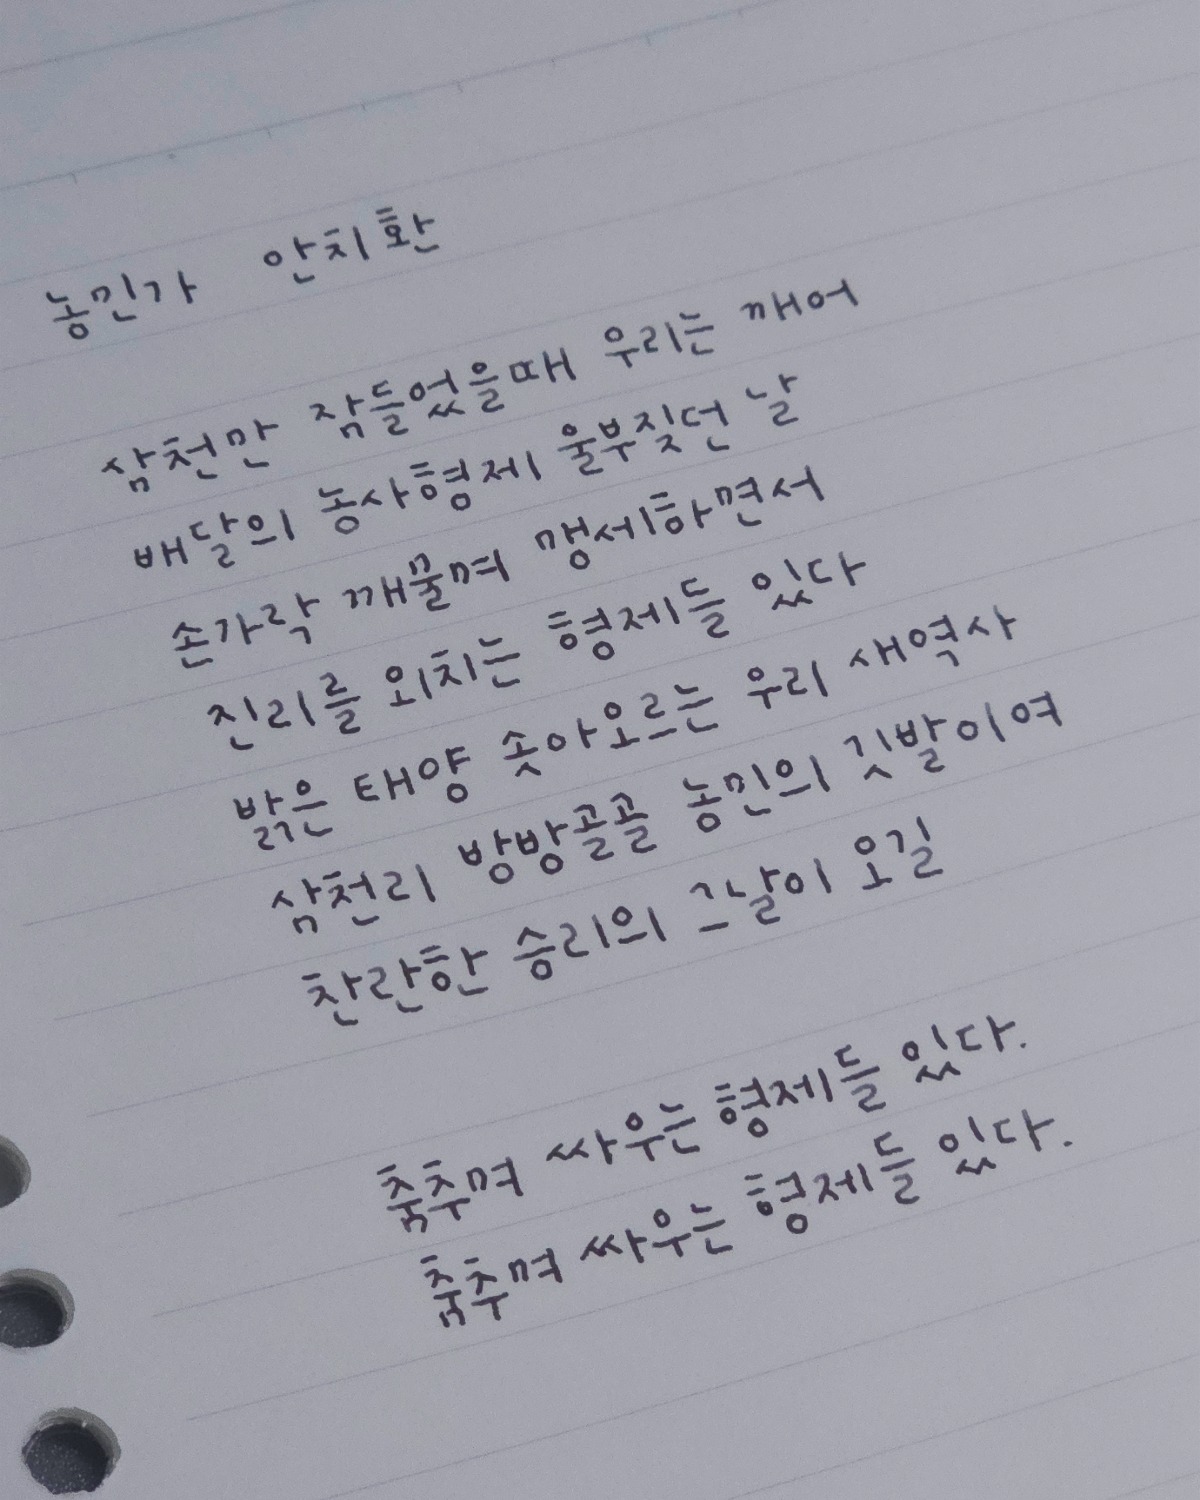 농민가 안치환
삼천만 잠들었을때 우리는 깨어
배달의 농사형제 울부짖던 날
손가락 깨물며 맹세하면서
진리를 외치는 형제들 있다
밝은 태양 솟아오르는 우리 새역사
삼천리 방방골골 농민의 깃발이여
찬란한 승리의 그날이 오길
춤추며 싸우는 형제들 있다.
춤추며 싸우는 형제들 있다.